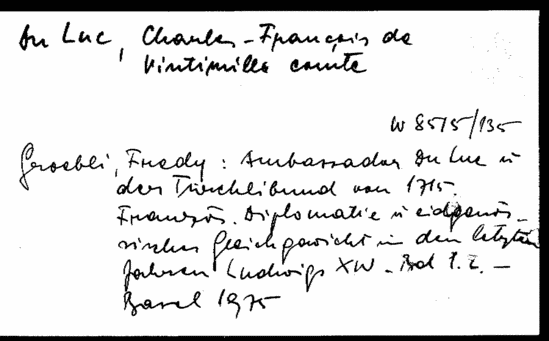 Du Luc, Charles-François de
Vintimille comte
W 8515/135
Groebli, Fredy: Ambassador Du Luc u
der Trücklibund von 1715.
Französ. Diplomatie u eidgenös-
sisches Gleichgewicht in den letzten
Jahren Ludwigs XIV. - Bd 1.2. -
Basel 1975